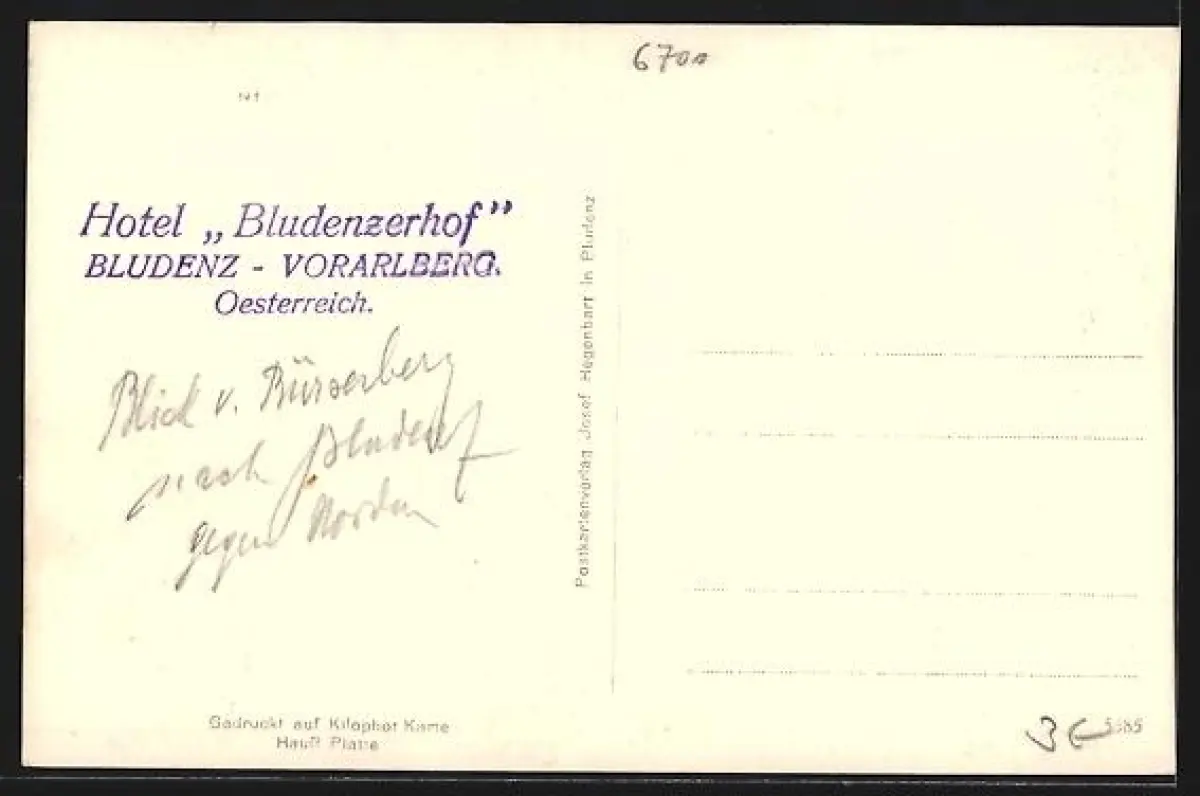 6700
Hotel „Bludenzerhof”
BLUDENZ - VORARLBERG.
Oesterreich.
Blick v. Bürserberg
nach Bludenz
gegen Norden
Postkartenverlag Josef Hegenbart in Bludenz
Gedruckt auf Kilophot Karte
Hauff Platte
3 €